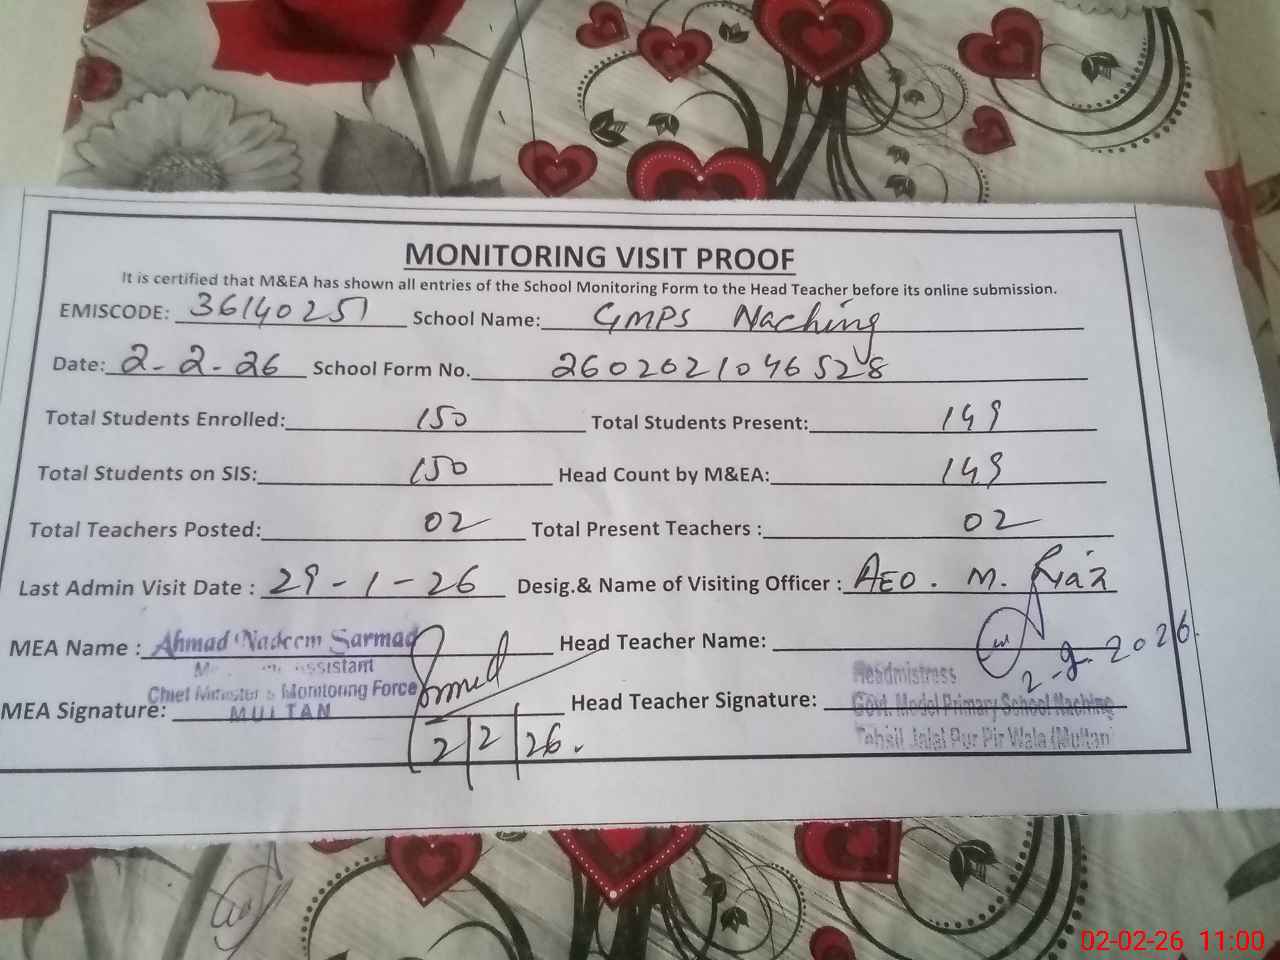 MONITORING VISIT PROOF
It is certified that M&EA has shown all entries of the School Monitoring Form to the Head Teacher before its online submission.
EMISCODE: 36140251 School Name: GMPS Naching
Date: 2-2-26 School Form No. 2602621046528
Total Students Enrolled: 150 Total Students Present: 149
Total Students on SIS: 150 Head Count by M&EA: 149
Total Teachers Posted: 02 Total Present Teachers : 02
Last Admin Visit Date : 29-1-26 Desig.& Name of Visiting Officer : AEO. M. Riaz
MEA Name : Ahmad Nadeem Sarmad Head Teacher Name:
Assistant
Chief Minister's Monitoring Force
MULTAN
MEA Signature: Head Teacher Signature:
2/2/26.
2-2-2026
Headmistress
Govt. Model Primary School Naching
Tehsil Jalal Pur Pir Wala (Multan)
02-02-26 11:00